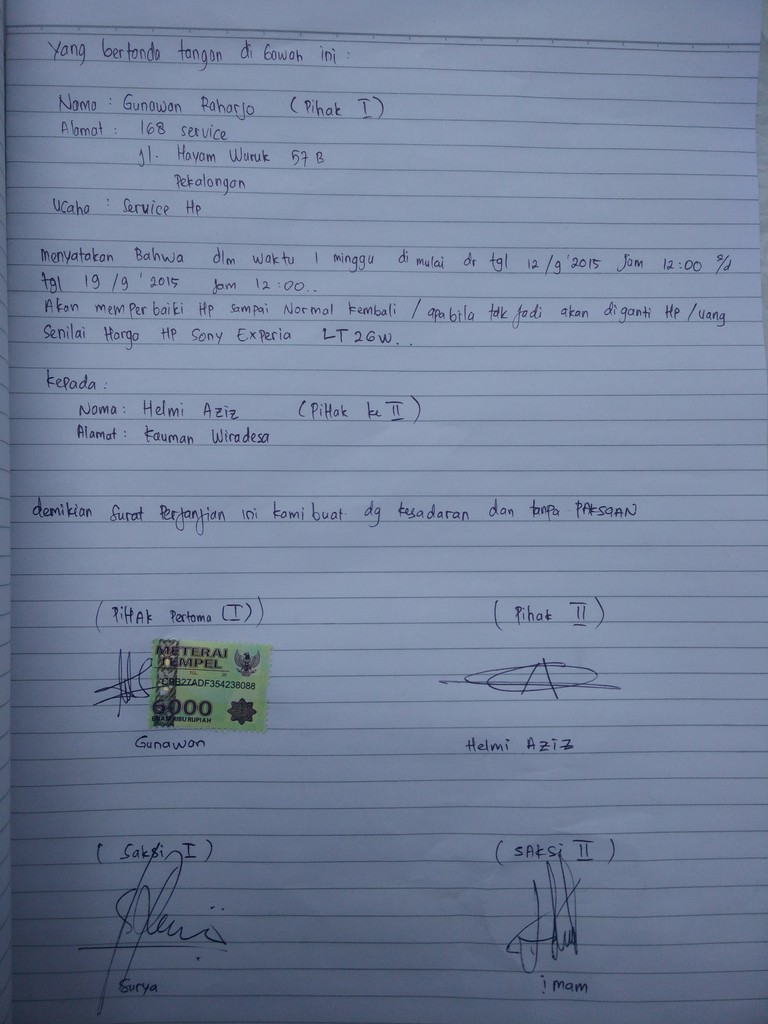 Yang bertanda tangan di bawah ini :
Nama : Gunawan Raharjo (Pihak I)
Alamat : 168 service
jl. Hayam Wuruk 57 B
Pekalongan
Usaha : Service Hp
Menyatakan Bahwa dlm waktu 1 minggu di mulai dr tgl 12/9 '2015 Jam 12:00 s/d
tgl 19/9 '2015 Jam 12:00..
Akan memperbaiki Hp sampai Normal kembali / apabila tdk jadi akan diganti Hp /uang
Senilai Harga HP Sony Experia LT 26W..
kepada :
Nama : Helmi Aziz (PiHak ke II)
Alamat : Kauman Wiradesa
demikian Surat Perjanjian ini kami buat dg kesadaran dan tanpa PAKSAAN
(PiHAk Pertama (I))
(Pihak II)
METERAI
TEMPEL
TGL 20
CRB27ADF354238088
6000
ENAM RIBU RUPIAH
Gunawan
Helmi AZiZ
(Saksi I)
(SAKSi II)
Surya
imam